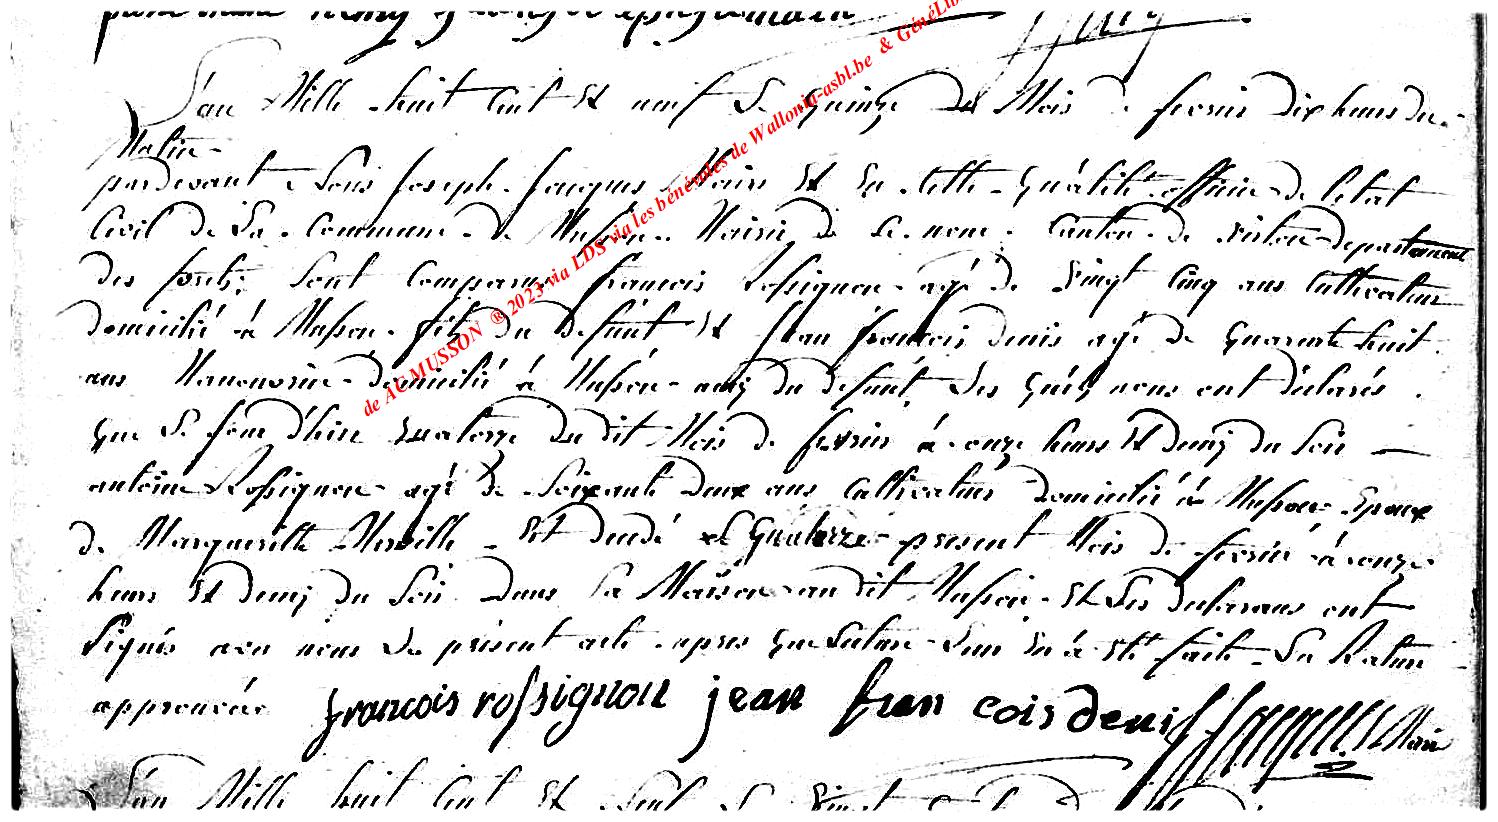 L'an Mille huit Cent Et neuf Le quinze du Mois de fevrier dix heurs du
Matin
pardevant Nous Joseph Jacques Maire Et En Cette qualité officier de letat
Civil de La Commune de Musson Mairie de Ce nom Canton de virton departement
des forets Sont Comparus francois Rossignon agé de vingt Cinq ans Cultivateur
domicilié à Musson fils du defunt Et Jean francois denis agé de quarante huit
ans Manouvrie domicilié à Musson amÿ du defunt, Les quels nous ont déclarés
que Le jour d'hier quatorze du dit Mois de fevrier à onze heurs Et demÿ du Soir
antoine Rossignon agé de Soixante deux ans Cultivateur domicilié à Musson Epoux
de Margueritte Merville Est decedé Le quatorze present Mois de fevrier à onze
heurs Et demÿ du Soir dans Sa Maison au dit Musson Et Les declarans ont
Signés avec nous Le présent acte apres que Lecture Leur En à Eté faite La Rature
approuvée francois rossignon jean fran cois denis J. Jacques Maire
L'an Mille huit Cent Et neuf Le Vingt
de AGMUSSON ® 2023 via LDS via les bénévoles de Wallonia-asbl.be & GénéLux